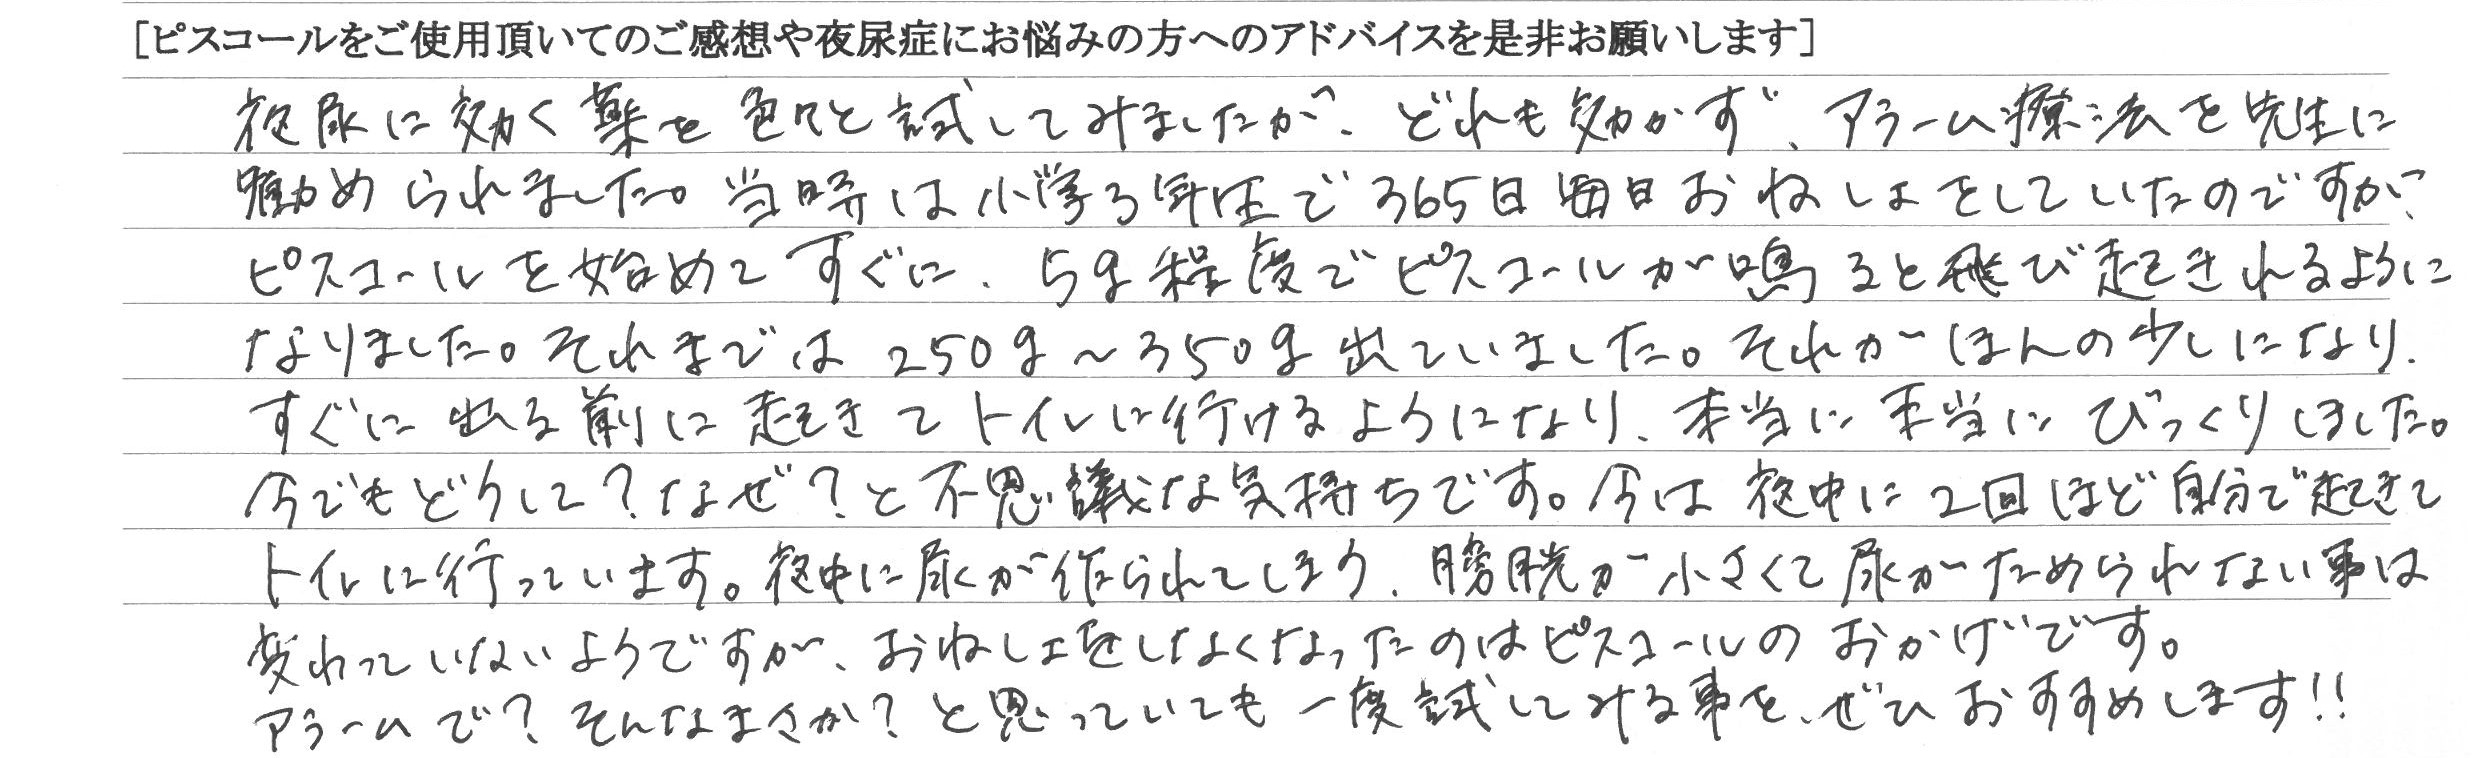 [ピスコールをご使用頂いてのご感想や夜尿症にお悩みの方へのアドバイスを是非お願いします]
夜尿に効く薬を色々と試してみましたが、どれも効かず、アラーム療法を先生に
勧められました。当時は小学3年生で365日毎日おねしょをしていたのですが、
ピスコールを始めてすぐに、5g程度でピスコールが鳴ると飛び起きれるように
なりました。それまでは250g～350g出ていました。それがほんの少しになり、
すぐに出る前に起きてトイレに行けるようになり、本当に本当にびっくりしました。
今でもどうして？なぜ？と不思議な気持ちです。今は夜中に2回ほど自分で起きて
トイレに行っています。夜中に尿が作られてしまう、膀胱が小さくて尿がためられない事は
変わっていないようですが、おねしょをしなくなったのはピスコールのおかげです。
アラームで？そんなまさか？と思っていても一度試してみる事を、ぜひおすすめします!!